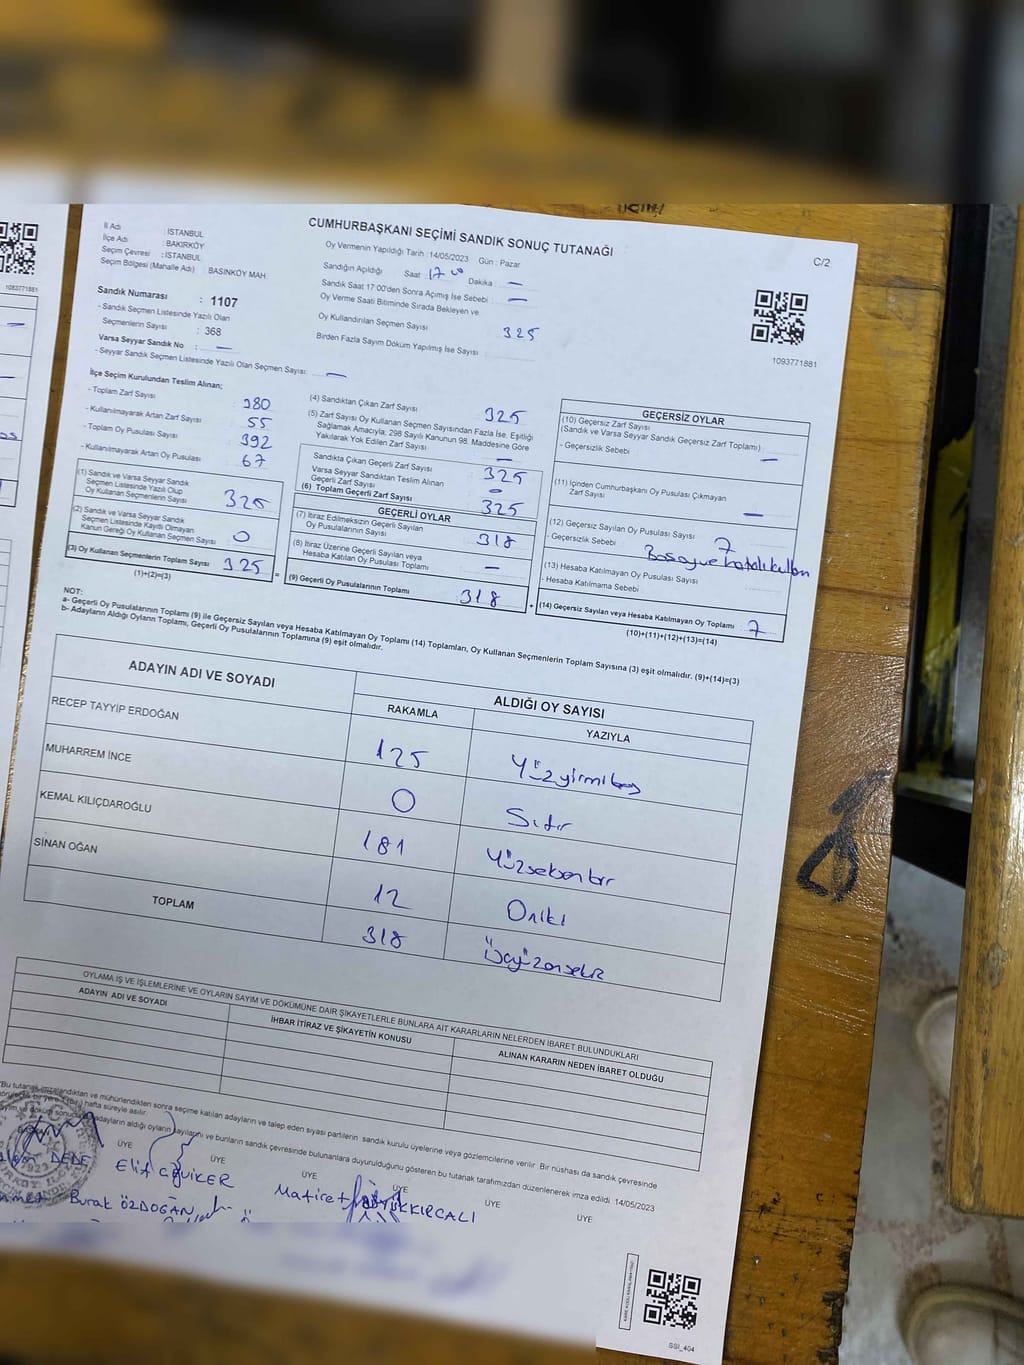 CUMHURBAŞKANI SEÇİMİ SANDIK SONUÇ TUTANAĞI
C/2
İl Adı : İSTANBUL
İlçe Adı : BAKIRKÖY
Seçim Çevresi : İSTANBUL
Seçim Bölgesi (Mahalle Adı) : BASINKÖY MAH.
Oy Vermenin Yapıldığı Tarih : 14/05/2023 Gün : Pazar
Sandığın Açıldığı Saat 17 00 Dakika : —
Sandık Saat 17:00'den Sonra Açımış İse Sebebi : —
Oy Verme Saati Bitiminde Sırada Bekleyen ve
Oy Kullandırılan Seçmen Sayısı 325
Birden Fazla Sayım Döküm Yapılmış İse Sayısı :
1083771881
1093771881
Sandık Numarası : 1107
- Sandık Seçmen Listesinde Yazılı Olan
Seçmenlerin Sayısı : 368
Varsa Seyyar Sandık No : —
- Seyyar Sandık Seçmen Listesinde Yazılı Olan Seçmen Sayısı : —
İlçe Seçim Kurulundan Teslim Alınan;
- Toplam Zarf Sayısı : 380
- Kullanılmayarak Artan Zarf Sayısı : 55
- Toplam Oy Pusulası Sayısı : 392
- Kullanılmayarak Artan Oy Pusulası : 67
(1) Sandık ve Varsa Seyyar Sandık
Seçmen Listesinde Yazılı Olup
Oy Kullanan Seçmenlerin Sayısı 325
(2) Sandık ve Varsa Seyyar Sandık
Seçmen Listesinde Kayıtlı Olmayan
Kanun Gereği Oy Kullanan Seçmen Sayısı 0
(3) Oy Kullanan Seçmenlerin Toplam Sayısı 325
(1)+(2)=(3)
(4) Sandıktan Çıkan Zarf Sayısı 325
(5) Zarf Sayısı Oy Kullanan Seçmen Sayısından Fazla İse, Eşitliği
Sağlamak Amacıyla; 298 Sayılı Kanunun 98. Maddesine Göre
Yakılarak Yok Edilen Zarf Sayısı —
Sandıkta Çıkan Geçerli Zarf Sayısı 325
Varsa Seyyar Sandıktan Teslim Alınan
Geçerli Zarf Sayısı 0
(6) Toplam Geçerli Zarf Sayısı 325
GEÇERLİ OYLAR
(7) İtiraz Edilmeksizin Geçerli Sayılan
Oy Pusulalarının Sayısı 318
(8) İtiraz Üzerine Geçerli Sayılan veya
Hesaba Katılan Oy Pusulası Toplamı —
(9) Geçerli Oy Pusulalarının Toplamı 318
GEÇERSİZ OYLAR
(10) Geçersiz Zarf Sayısı
(Sandık ve Varsa Seyyar Sandık Geçersiz Zarf Toplamı)
- Geçersizlik Sebebi —
(11) İçinden Cumhurbaşkanı Oy Pusulası Çıkmayan
Zarf Sayısı —
(12) Geçersiz Sayılan Oy Pusulası Sayısı 7
- Geçersizlik Sebebi :
(13) Hesaba Katılmayan Oy Pusulası Sayısı
- Hesaba Katılmama Sebebi
(14) Geçersiz Sayılan veya Hesaba Katılmayan Oy Toplamı 7
(10)+(11)+(12)+(13)=(14)
NOT:
a- Geçerli Oy Pusulalarının Toplamı (9) ile Geçersiz Sayılan veya Hesaba Katılmayan Oy Toplamı (14) Toplamları, Oy Kullanan Seçmenlerin Toplam Sayısına (3) eşit olmalıdır. (9)+(14)=(3)
b- Adayların Aldığı Oyların Toplamı, Geçerli Oy Pusulalarının Toplamına (9) eşit olmalıdır.
ADAYIN ADI VE SOYADI
ALDIĞI OY SAYISI
RAKAMLA YAZIYLA
RECEP TAYYİP ERDOĞAN 125 Yüzyirmibeş
MUHARREM İNCE 0 Sıfır
KEMAL KILIÇDAROĞLU 181 Yüzseksenbir
SİNAN OĞAN 12 Oniki
TOPLAM 318 Üçyüzonsekiz
OYLAMA İŞ VE İŞLEMLERİNE VE OYLARIN SAYIM VE DÖKÜMÜNE DAİR ŞİKAYETLERLE BUNLARA AİT KARARLARIN NELERDEN İBARET BULUNDUKLARI
ADAYIN ADI VE SOYADI
İHBAR İTİRAZ VE ŞİKAYETİN KONUSU
ALINAN KARARIN NEDEN İBARET OLDUĞU
"Bu tutanak imzalandıktan ve mühürlendikten sonra seçime katılan adayların ve talep eden siyasi partilerin sandık kurulu üyelerine veya gözlemcilerine verilir. Bir nüshası da sandık çevresinde
hafta süreyle asılır.
adayların aldığı oyların sayılarını ve bunların sandık çevresinde bulunanlara duyurulduğunu gösteren bu tutanak tarafımızdan düzenlenerek imza edildi. 14/05/2023
ÜYE ÜYE ÜYE ÜYE ÜYE ÜYE
DEDE
Elif
Burak ÖZDOĞAN
SSI_404